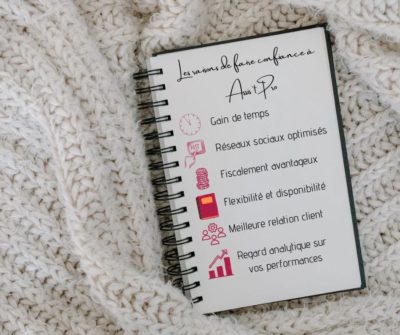 Les raisons de faire confiance à
Assist Pro
Gain de temps
Réseaux sociaux optimisés
Fiscalement avantageux
Flexibilité et disponibilité
Meilleure relation client
Regard analytique sur
vos performances